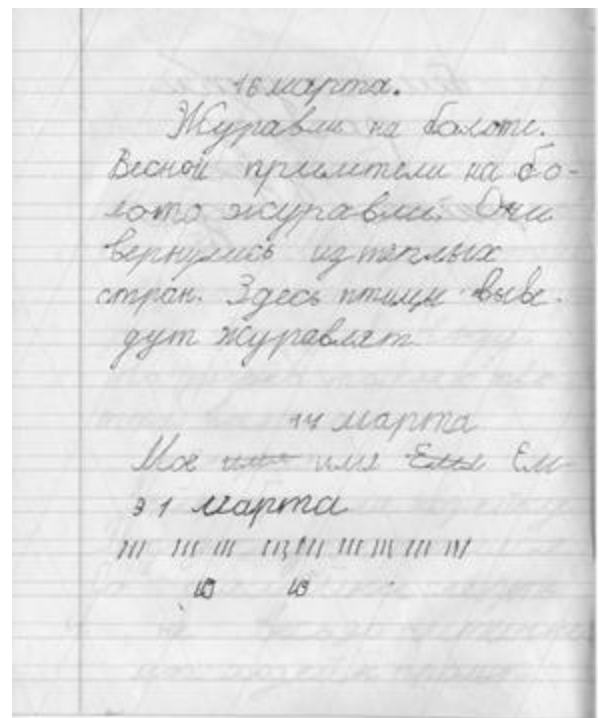 16 марта.
Журавли на болоте.
Весной прилетели на бо-
лото журавли. Они
вернулись из теплых
стран. Здесь птицы выве-
дут журавлят
14 марта
Мое имя имя Ем
31 марта